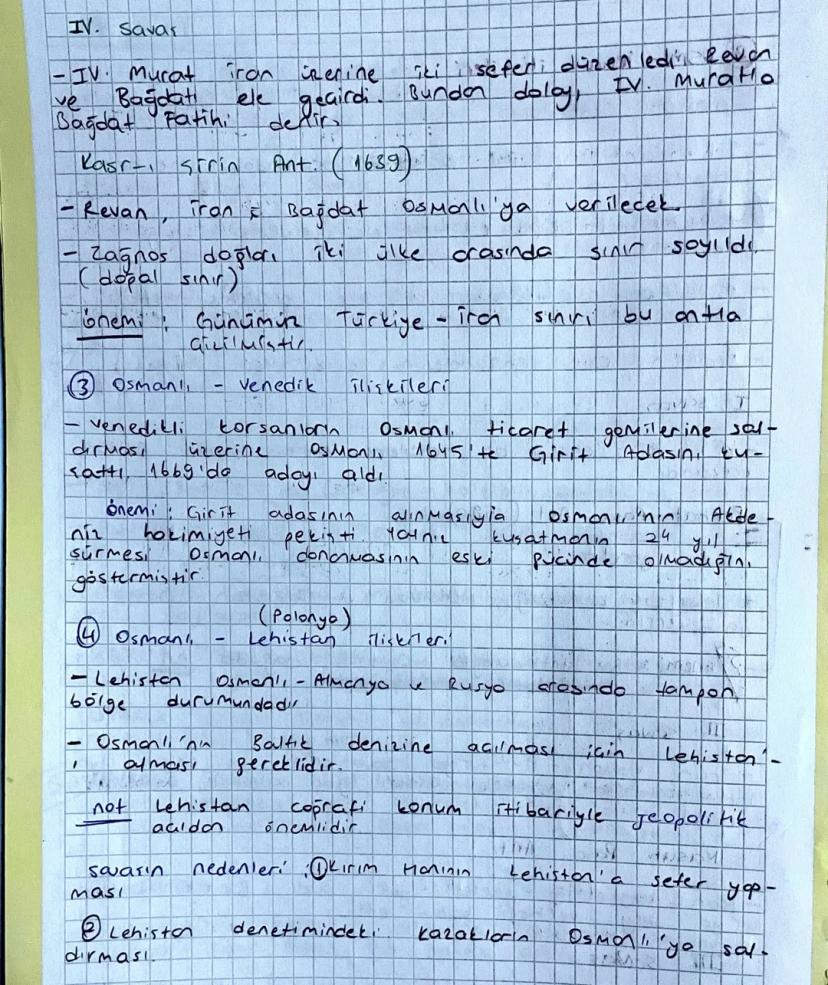 IV. Savaş
- IV. Murat İran üzerine iki seferi düzenledi. Revan
ve Bağdatı ele geçirdi. Bundan dolayı IV. Murat'a
Bağdat Fatihi denir.
Kasr-ı Şirin Ant. (1639)
- Revan, İran; Bağdat Osmanlı'ya verilecek
- Zağnos dağları iki ülke arasında sınır sayıldı
(doğal sınır)
önemi: Günümüz Türkiye - İran sınırı bu antla
çizilmiştir.
③ Osmanlı - Venedik ilişkileri
- Venedikli korsanların Osmanlı ticaret gemilerine sal-
dırması üzerine Osmanlı 1645'te Girit Adasını ku-
şattı, 1669'da adayı aldı
önemi: Girit adasının alınmasıyla Osmanlı'nın Akde-
niz hakimiyeti pekişti. Yalnız kuşatmanın 24 yıl
sürmesi Osmanlı donanmasının eski gücünde olmadığını
göstermiştir.
(Polonya)
④ Osmanlı - Lehistan ilişkileri
- Lehistan Osmanlı - Almanya ve Rusya arasında tampon
bölge durumundadır
- Osmanlı'nın Baltık denizine açılması için Lehistan'-
ı alması gereklidir.
not Lehistan coğrafi konum itibariyle jeopolitik
açıdan önemlidir
savaşın nedenleri: ① Kırım Hanının Lehistan'a sefer yap-
ması
② Lehistan denetimindeki kazakların Osmanlı'ya sal-
dırması.